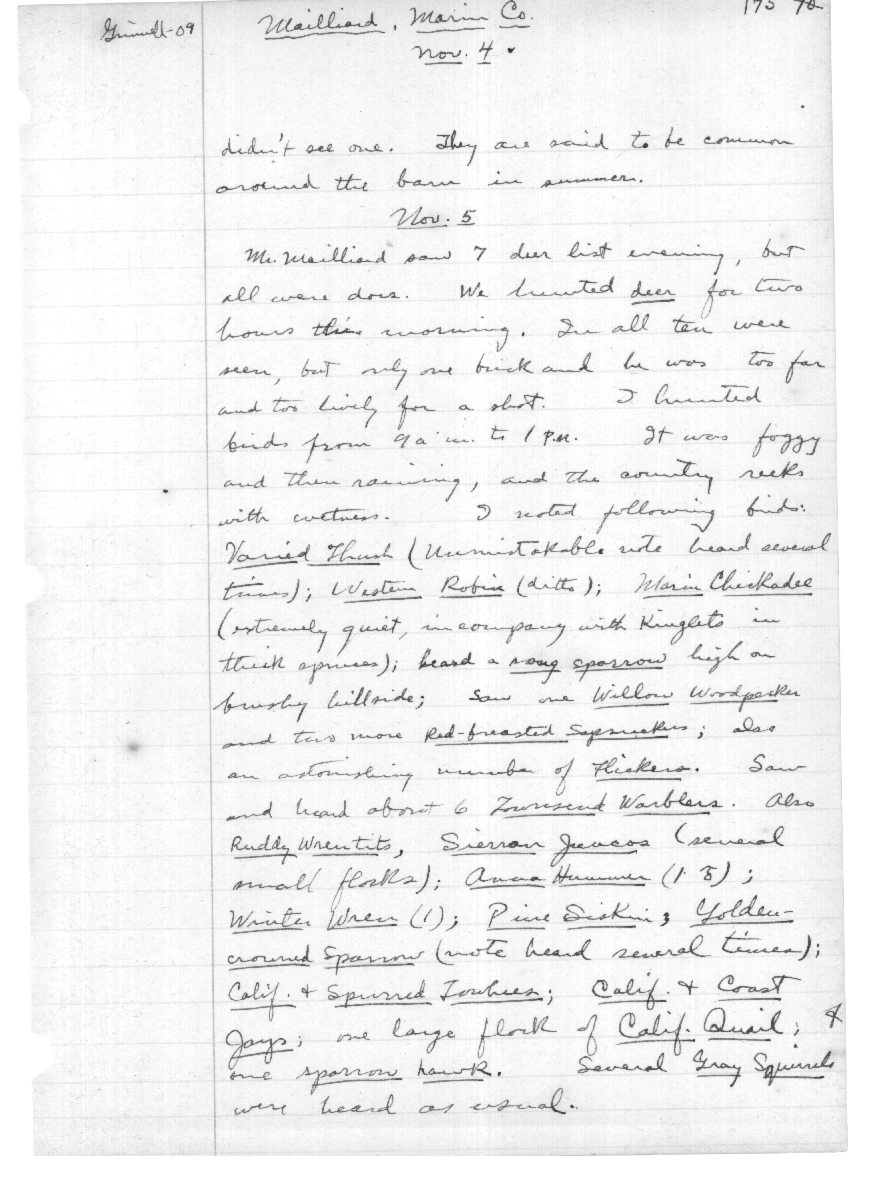 Grinnell-09
Mailliard, Marin Co.
175
Nov. 4.
didn't see one. They are said to be common
around the barn in summer.
Nov. 5
Mr. Mailliard saw 7 deer last evening, but
all were does. We hunted deer for two
hours this morning. In all ten were
seen, but only one buck and he was too far
and too lively for a shot. I hunted
birds from 9 a.m. to 1 P.M. It was foggy
and then raining, and the country reeks
with wetness. I noted following birds:
Varied Thrush (Unmistakable note heard several
times); Western Robin (ditto); Marin Chickadee
(extremely quiet, in company with Kinglets in
thick spruces); heard a song sparrow high on
brushy hillside; Saw one Willow Woodpecker
and two more Red-breasted Sapsuckers; also
an astonishing number of Flickers. Saw
and heard about 6 Townsend Warblers. Also
Ruddy Wrentits, Sierran Juncos (several
small flocks); Anna Hummer (1 ♂);
Winter Wren (1); Pine Siskin; Golden-
crowned Sparrow (note heard several times);
Calif. & Spurred Towhees; Calif. & Coast
Jays; one large flock of Calif. Quail; &
one sparrow hawk. Several Gray Squirrels
were heard as usual.